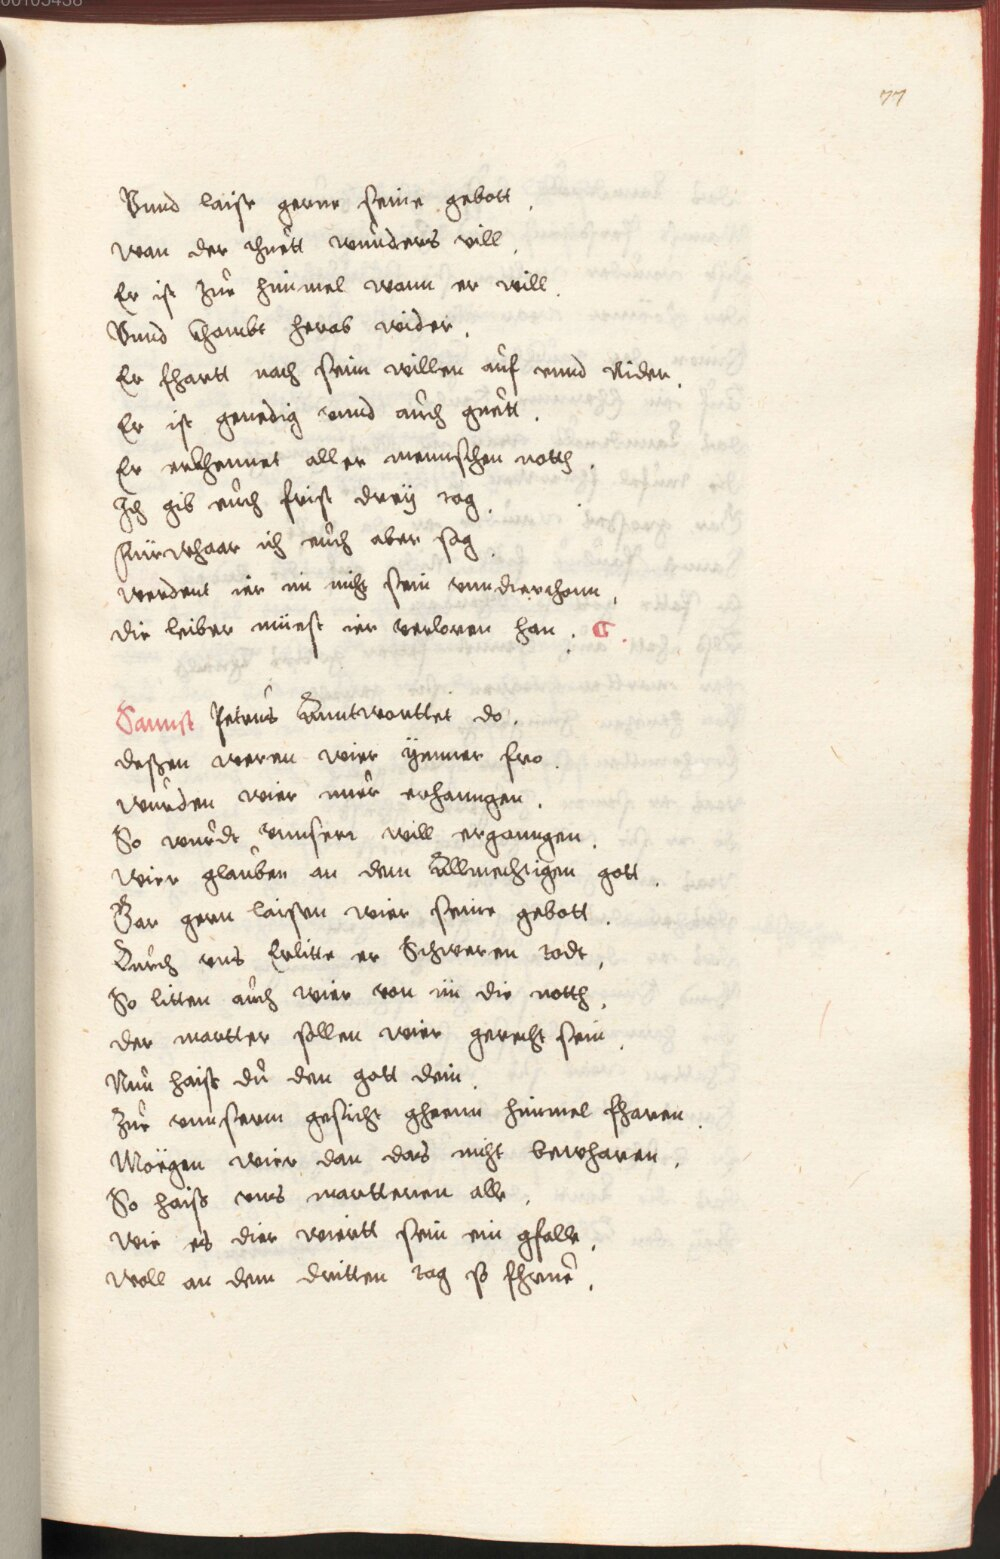 00103438
77
Vnnd laist gerne seine gebott .
wan der thuett wunders vill .
Er ist Zur himmel wann er will .
Vnnd khombt herab wider .
Er fhartt nach seim willen auf vnnd Nider .
Er ist genedig vnnd auch guett .
Er erkhennet aller mennschen notth .
Ich gib euch frist dreÿ tag .
Fürwhaar ich euch aber sag .
werdent ier im nicht sein vnnderthonn .
die leiber müest ier verloren han . C .
Sannst Petrus Anntworttet do .
deßen weren wier ÿemmer fro .
wurden wier nur erhanngen .
So wurdt vnnsern will erganngen .
wier glauben an dem Allmechtigen gott .
Gar gern laisten wier seine gebott .
Durch vns Erlitte er Schweren todt .
So litten auch wier von im die notth .
der martter sollen wier gerecht sein .
Nun haist du den gott dein .
Zur vnnserm gesicht gheenn himmel fharen .
Mögen wier dan das nicht bewharen .
So haiß vns martteren alle .
wie es dier wiertt sein ein gfalle .
woll an dem dritten tag ß